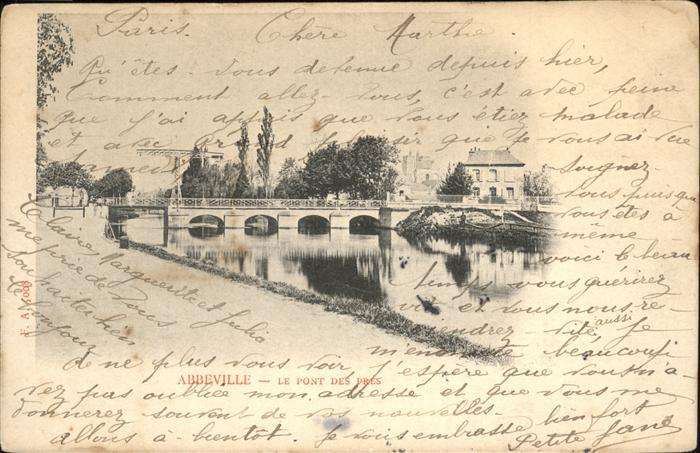 Paris. Chère Marthe
Qu'êtes-vous devenue depuis hier,
Comment allez-vous, c'est avec peine
que j'ai appris que vous étiez malade
et avec grand plaisir que je vous ai vue
Soignez-
vous puisque
vous êtes à
même
voici le beau
temps vous guérirez
vite et vous nous re-
viendrez vite, aussi je
m'ennuie beaucoup
de ne plus vous voir j'espère que vous n'a-
vez pas oubliée mon adresse et que vous me
donnerez souvent de vos nouvelles.
allons à-bientôt. je vous embrasse bien fort
Petite Jane
Claire Marguerite et Julia
me prie de vous
souhaiter bien
le bonjour
ABBEVILLE — LE PONT DES PRÉS